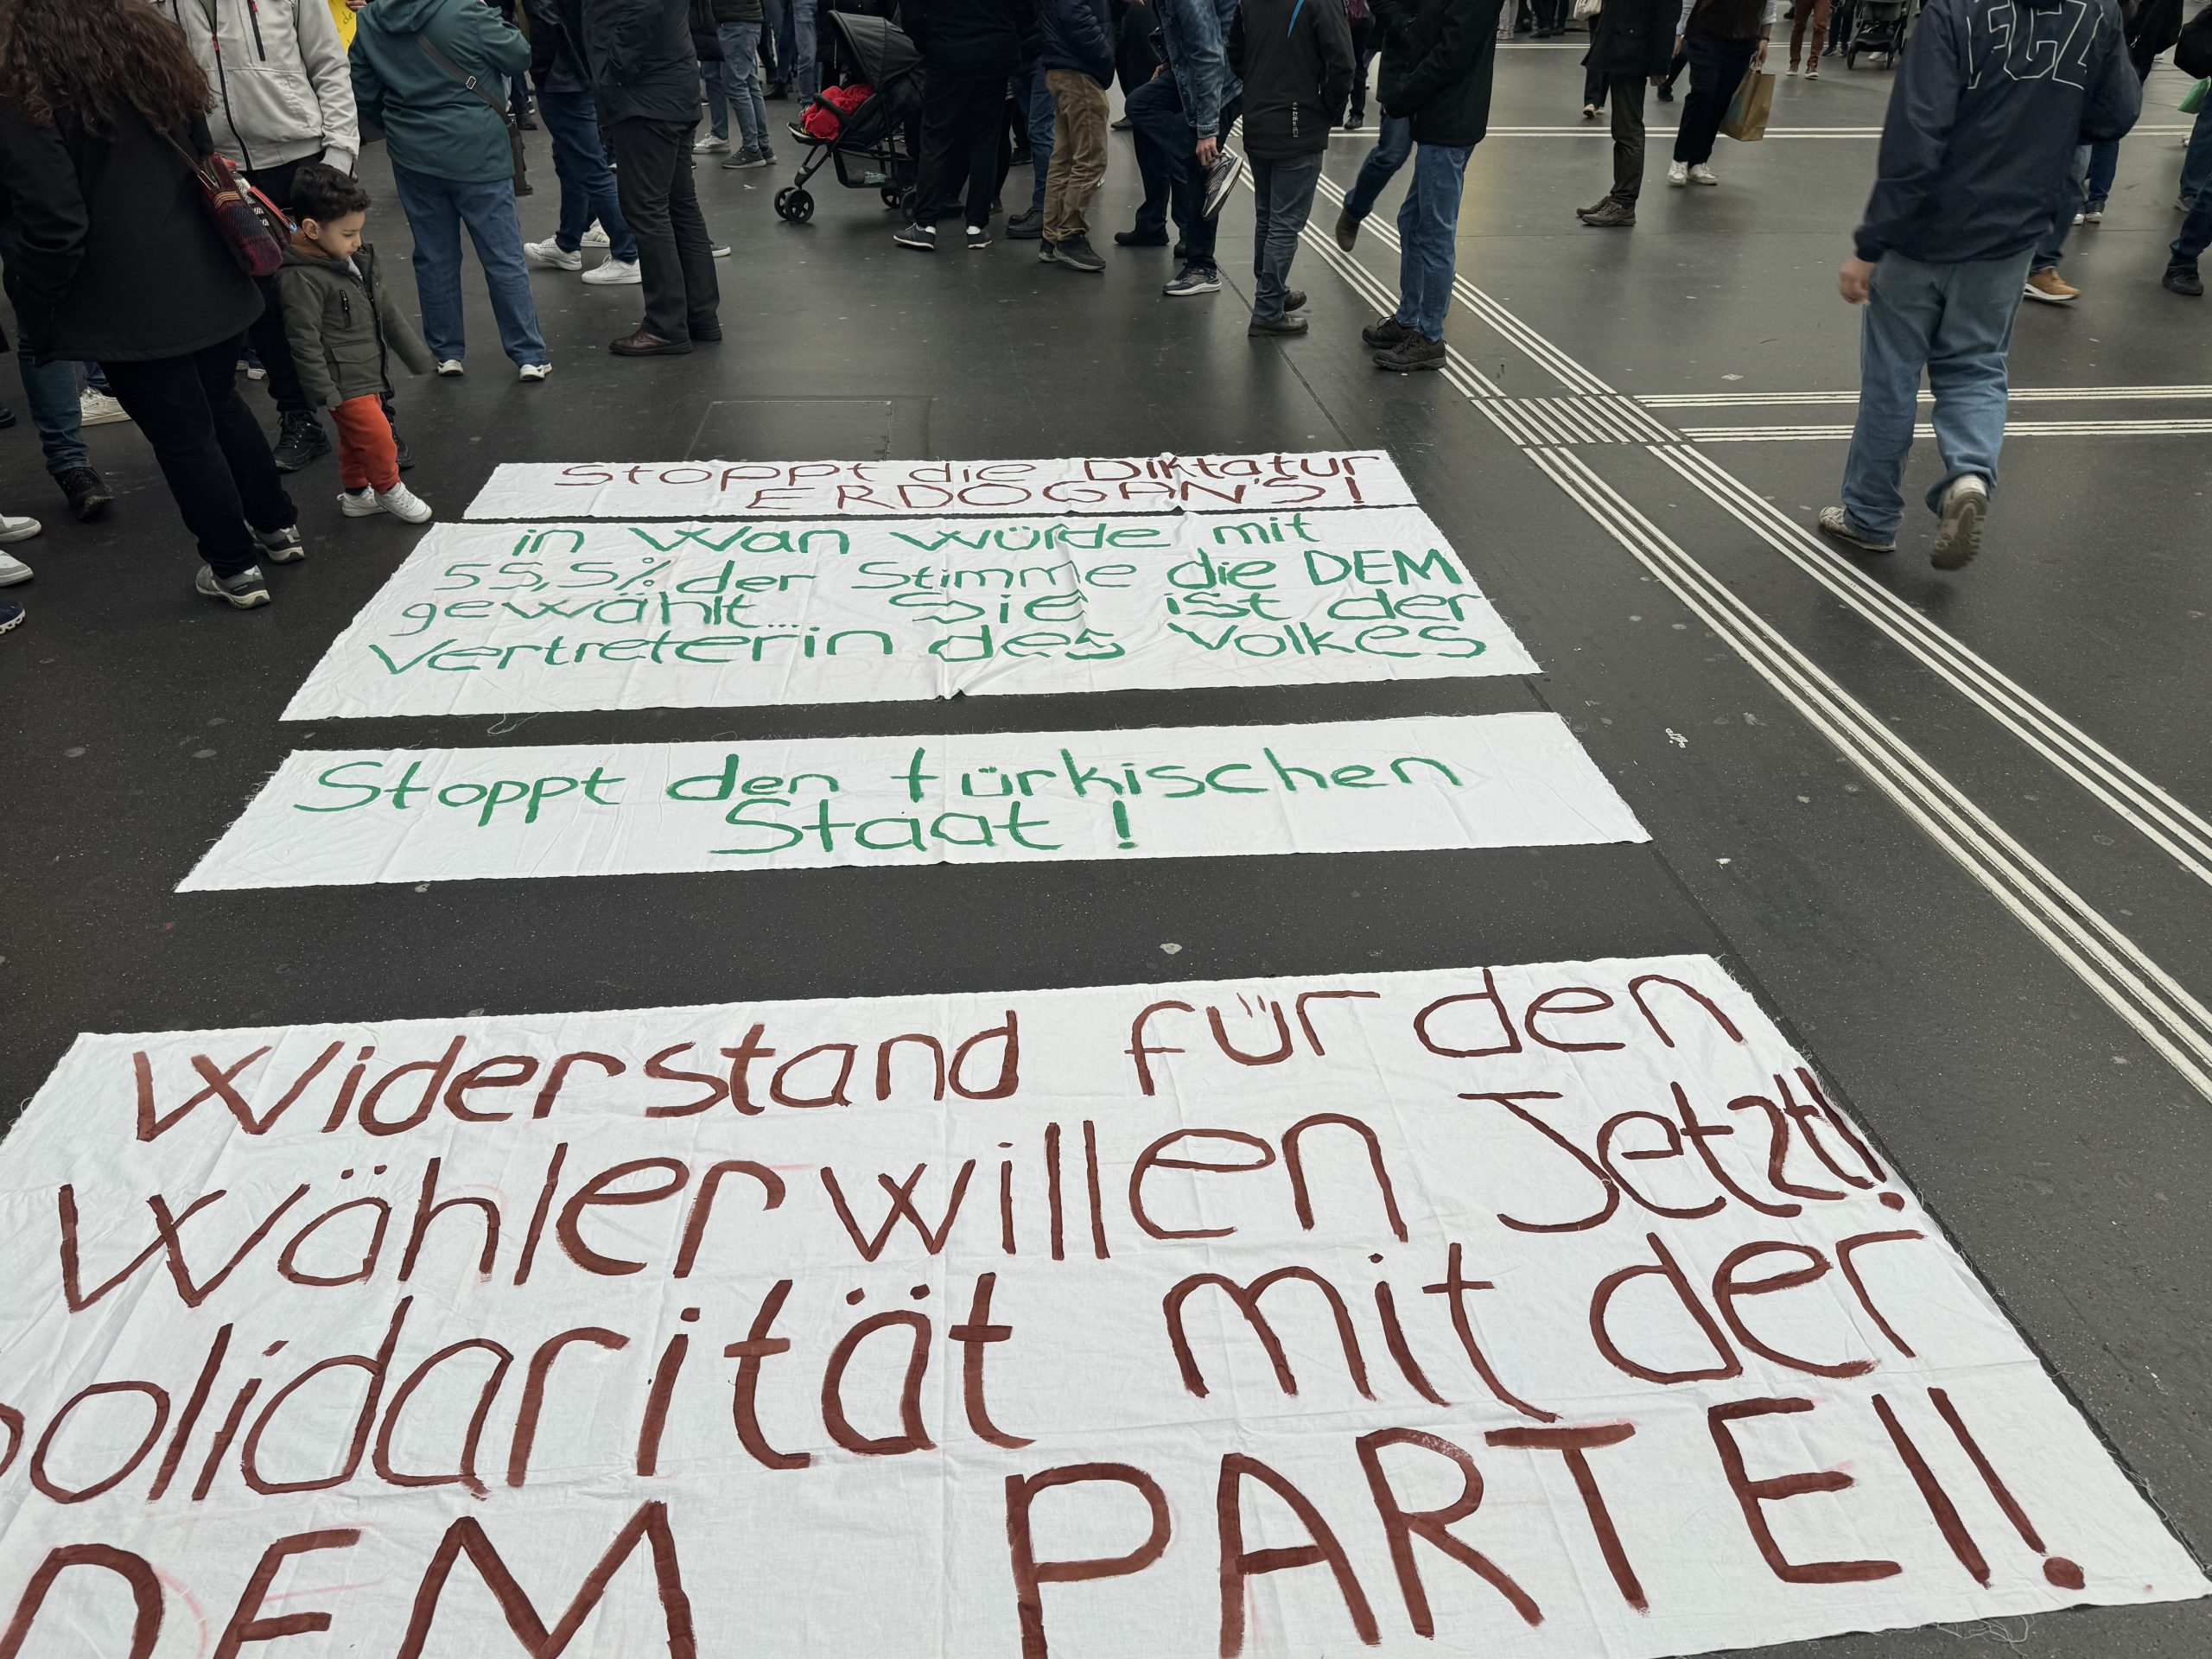 FCZ
Stoppt die Diktatur
ERDOGAN'S!
in Wan würde mit
55,5% der Stimme die DEM
gewählt.... Sie ist der
Vertreterin des Volkes
Stoppt den türkischen
Staat!
Widerstand für den
Wählerwillen Jetzt!!
Solidarität mit der
DEM PARTEI!